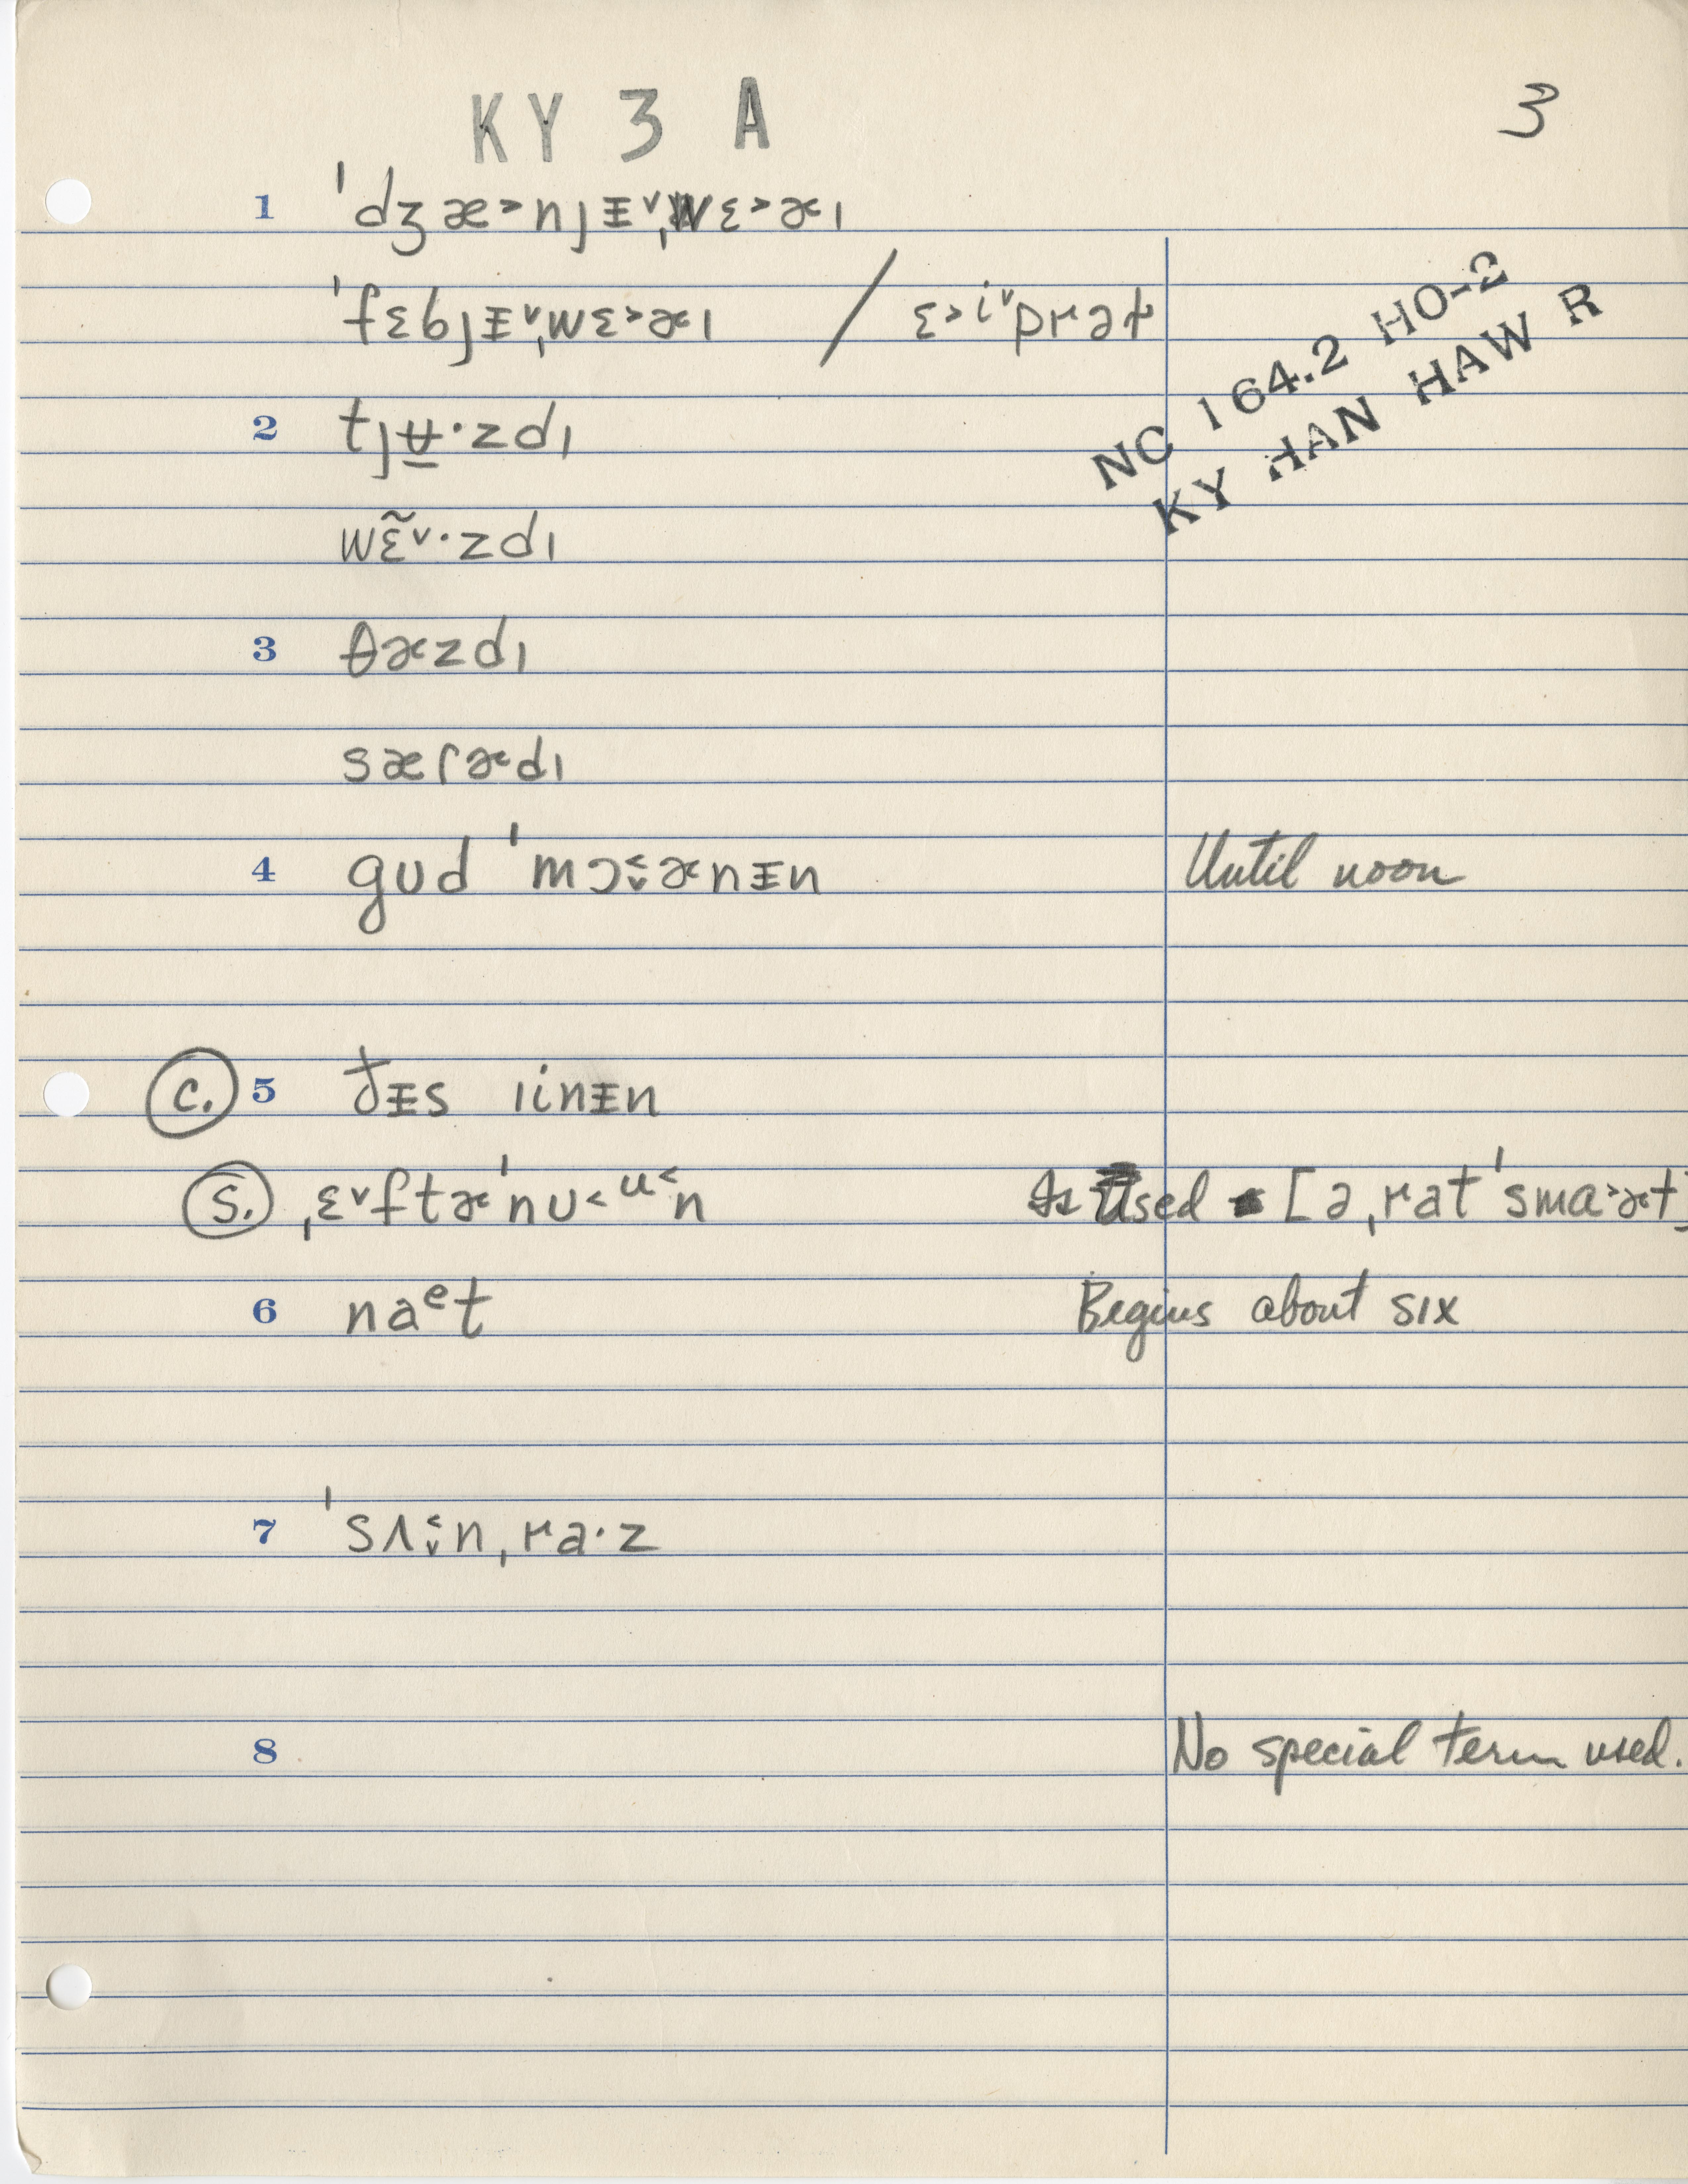 KY 3 A
3
1 ˈdʒæ˃njᵻ˅ˌwɛ˃ɚɪ
ˈfɛbjᵻ˅ˌwɛ˃ɚɪ /
NC 164.2 HO-2
KY HAN HAW R
2 tjʉ̲·zdɪ
wɛ̃˅·zdɪ
3 θɚzdɪ
sæɾɚdɪ
4 gud ˈmɔ˂˅ɚnᵻn Until noon
C. 5 ðᵻs ɪinᵻn
S. ˌɛ˅ftɚˈnʊ˂ᵘ˂n Used [ə ˌrat ˈsmɑ˃ɚt]
6 naᵉt Begins about six
7 ˈsʌ˂˅nˌra·z
8 No special term used.